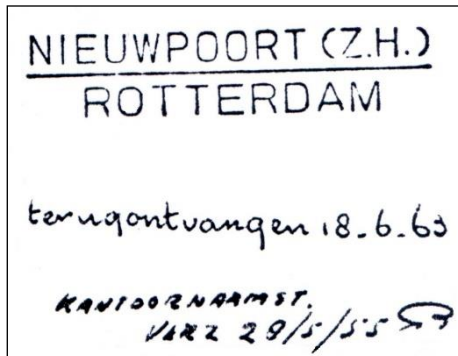 NIEUWPOORT (Z.H.)
ROTTERDAM
terugontvangen 18.6.63
KANTOORNAAMST.
VERZ 28/5/55